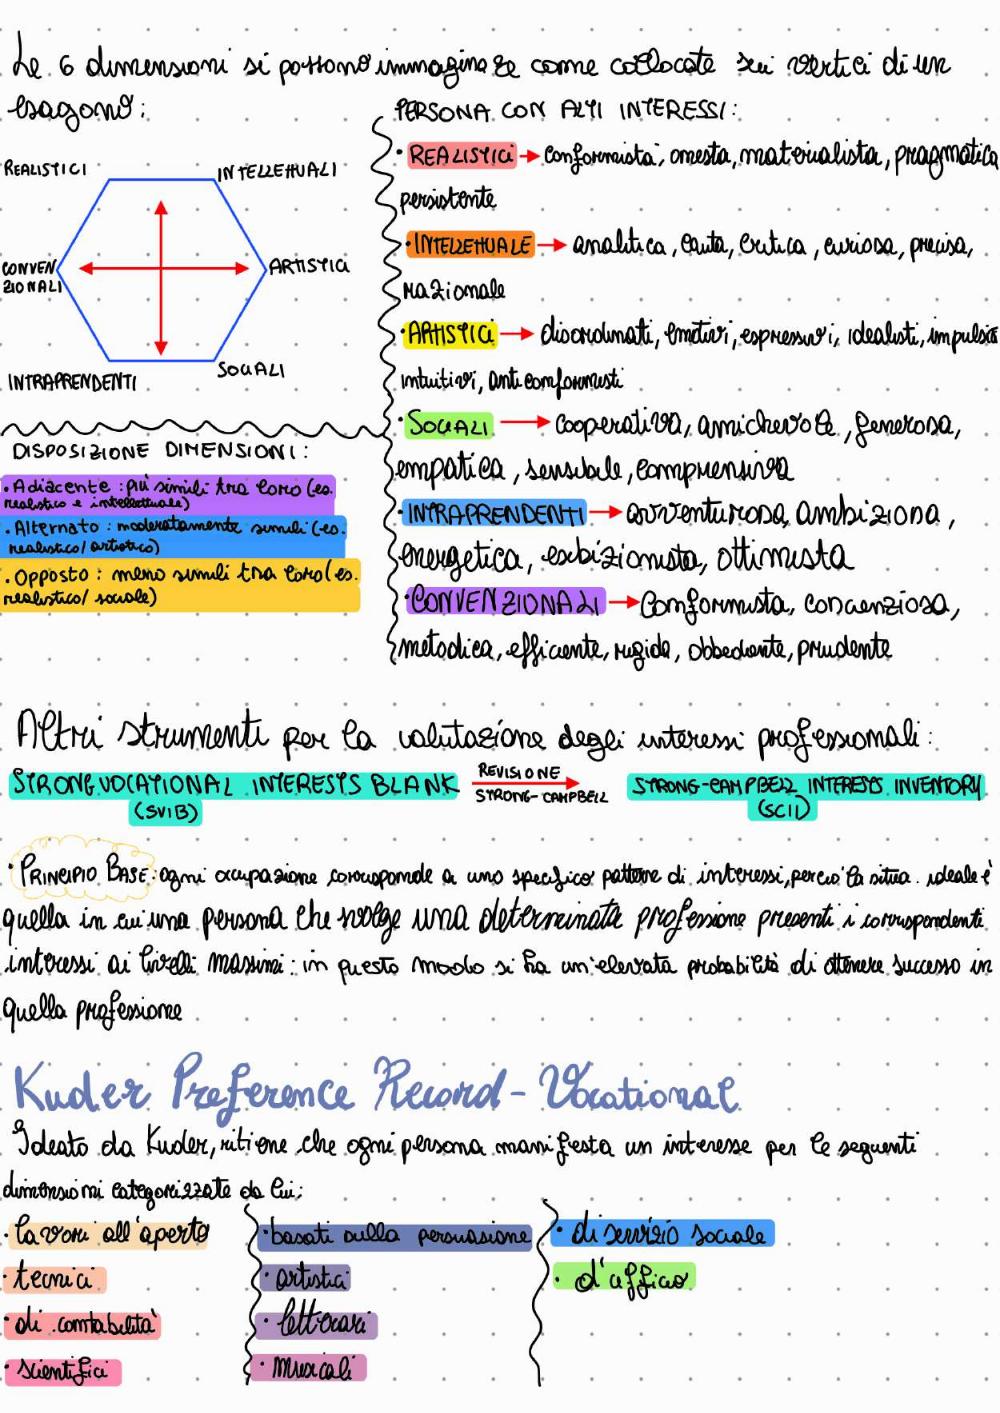 Le 6 dimensioni si possono immaginare come collocate sui vertici di un
esagono:
REALISTICI
INTELLETTUALI
CONVEN
ZIONALI
ARTISTICI
INTRAPRENDENTI
SOCIALI
DISPOSIZIONE DIMENSIONI:
• Adiacente: più simili tra loro (es.
realistico e intellettuale)
• Alternato: moderatamente simili (es.
realistico/artistico)
• Opposto: meno simili tra loro (es.
realistico/sociale)
PERSONA CON ALTI INTERESSI:
• REALISTICI → conformista, onesta, materialista, pragmatica
persistente
• INTELLETTUALE → analitica, cauta, critica, curiosa, precisa,
razionale
• ARTISTICI → disordinati, emotivi, espressivi, idealisti, impulsivi
intuitivi, anticonformisti
• SOCIALI → cooperativa, amichevole, generosa,
empatica, sensibile, comprensiva
• INTRAPRENDENTI → avventurosa, ambiziosa,
energetica, esibizionista, ottimista
• CONVENZIONALI → conformista, coscienziosa,
metodica, efficiente, rigida, obbediente, prudente
Altri strumenti per la valutazione degli interessi professionali:
STRONG VOCATIONAL INTERESTS BLANK
(SVIB)
REVISIONE
STRONG-CAMPBELL
STRONG-CAMPBELL INTERESTS INVENTORY
(SCII)
• PRINCIPIO BASE: ogni occupazione corrisponde a uno specifico pattern di interessi, perciò la situa. ideale è
quella in cui una persona che svolge una determinata professione presenti i corrispondenti
interessi ai livelli massimi: in questo modo si ha un'elevata probabilità di ottenere successo in
quella professione
Kuder Preference Record-Vocational
Ideato da Kuder, ritiene che ogni persona manifesta un interesse per le seguenti
dimensioni categorizzate da lui:
• lavori all'aperto
• tecnici
• di contabilità
• scientifici
• basati sulla persuasione
• artistici
• letterari
• musicali
• di servizio sociale
• d'ufficio